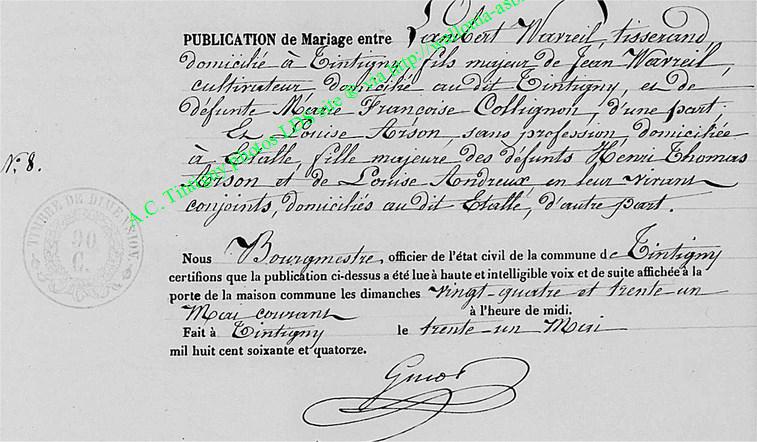 PUBLICATION de Mariage entre Lambert Warreil, tisserand,
domicilié à Tintigny, fils majeur de Jean Warreil,
cultivateur, domicilié au dit Tintigny, et de
défunte Marie Françoise Collignon, d'une part.
Et Louise Arson sans profession, domiciliée
N° 8.
à Etalle, fille majeure des défunts Henri Thomas
Arson et de Louise Andreux, en leur vivant
conjoints, domiciliés au dit Etalle, d'autre part.
A.C. Tintigny photos LDS via http://wallonia-asb
TIMBRE DE DIMENSION
90
C.
Nous Bourgmestre officier de l'état civil de la commune de Tintigny
certifions que la publication ci-dessus a été lue à haute et intelligible voix et de suite affichée à la
porte de la maison commune les dimanches vingt-quatre et trente-un
Mai courant à l'heure de midi.
Fait à Tintigny le trente-un Mai
mil huit cent soixante et quatorze.